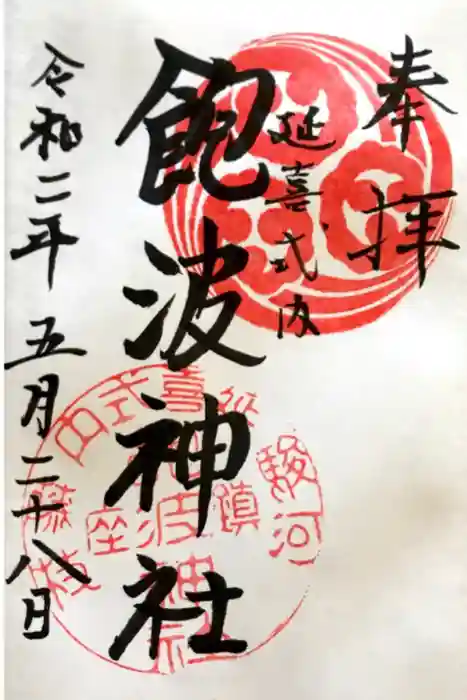 奉拝
延喜式内
飽波神社
令和二年五月二十八日
駿河
延喜式内
鎮座
飽波神社
藤枝